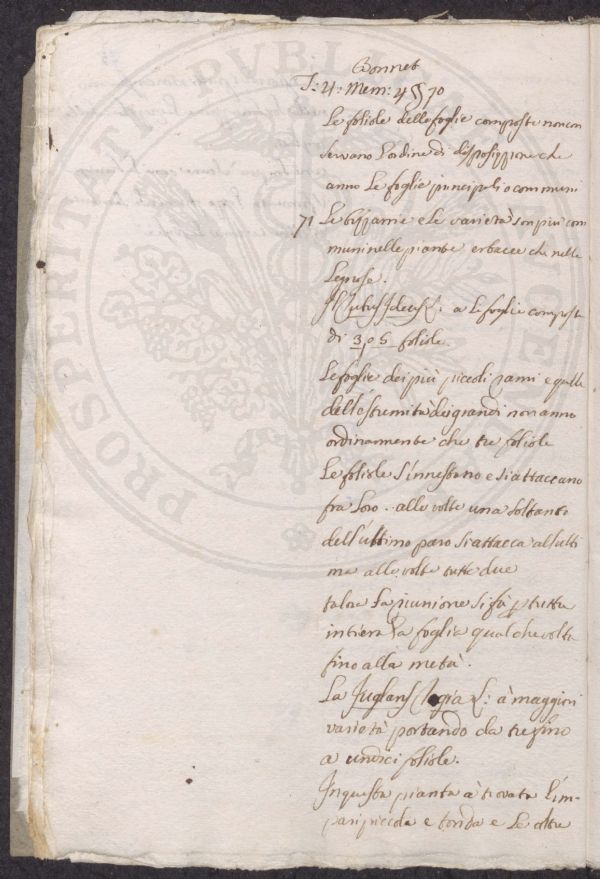 Bonnet
T: 4: Mem: 4 § 70
Le foliole delle foglie composte non con
servano l'ordine di disposizione che
anno le foglie principali o communi
71 Le bizzarrie e le varietà son più com
muni nelle piante erbacee che nelle
legnose.
Il Rubus Ideus L: a le foglie composte
di 3, o 5 foliole.
Le foglie dei più piccoli rami e quelle
dell'estremità dei grandi non anno
ordinariamente che tre foliole
Le foliole s'innestano e si attaccano
fra loro. alle volte una soltanto
dell'ultimo paro si attacca all'ulti
ma alle volte tutte due
talora la riunione si fà p tutta
intiera la foglia qualche volta
fino alla metà.
La Juglans Regia L: à maggiori
varietà portando da tre fino
a undici foliole.
In questa pianta à trovata l'im-
pari piccola e tonda e le altre
PROSPERITATI PUBLICAE